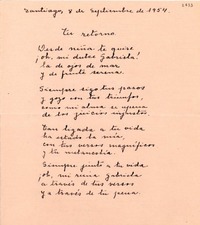 Santiago, 8 de Septiembre de 1954.
Tu retorno
Desde niña te quise
¡oh, mi dulce Gabriela!
la de ojos de mar
y de frente serena.
Siempre sigo tus pasos
y gozo con tus triunfos,
como mi alma se apena
de los juicios injustos.
Tan ligada a tu vida
ha estado la mía,
con tus versos magníficos
y tu melancolía.
Siempre junto a tu vida
¡oh, mi reina Gabriela
a través de tus versos
y a través de tu pena.